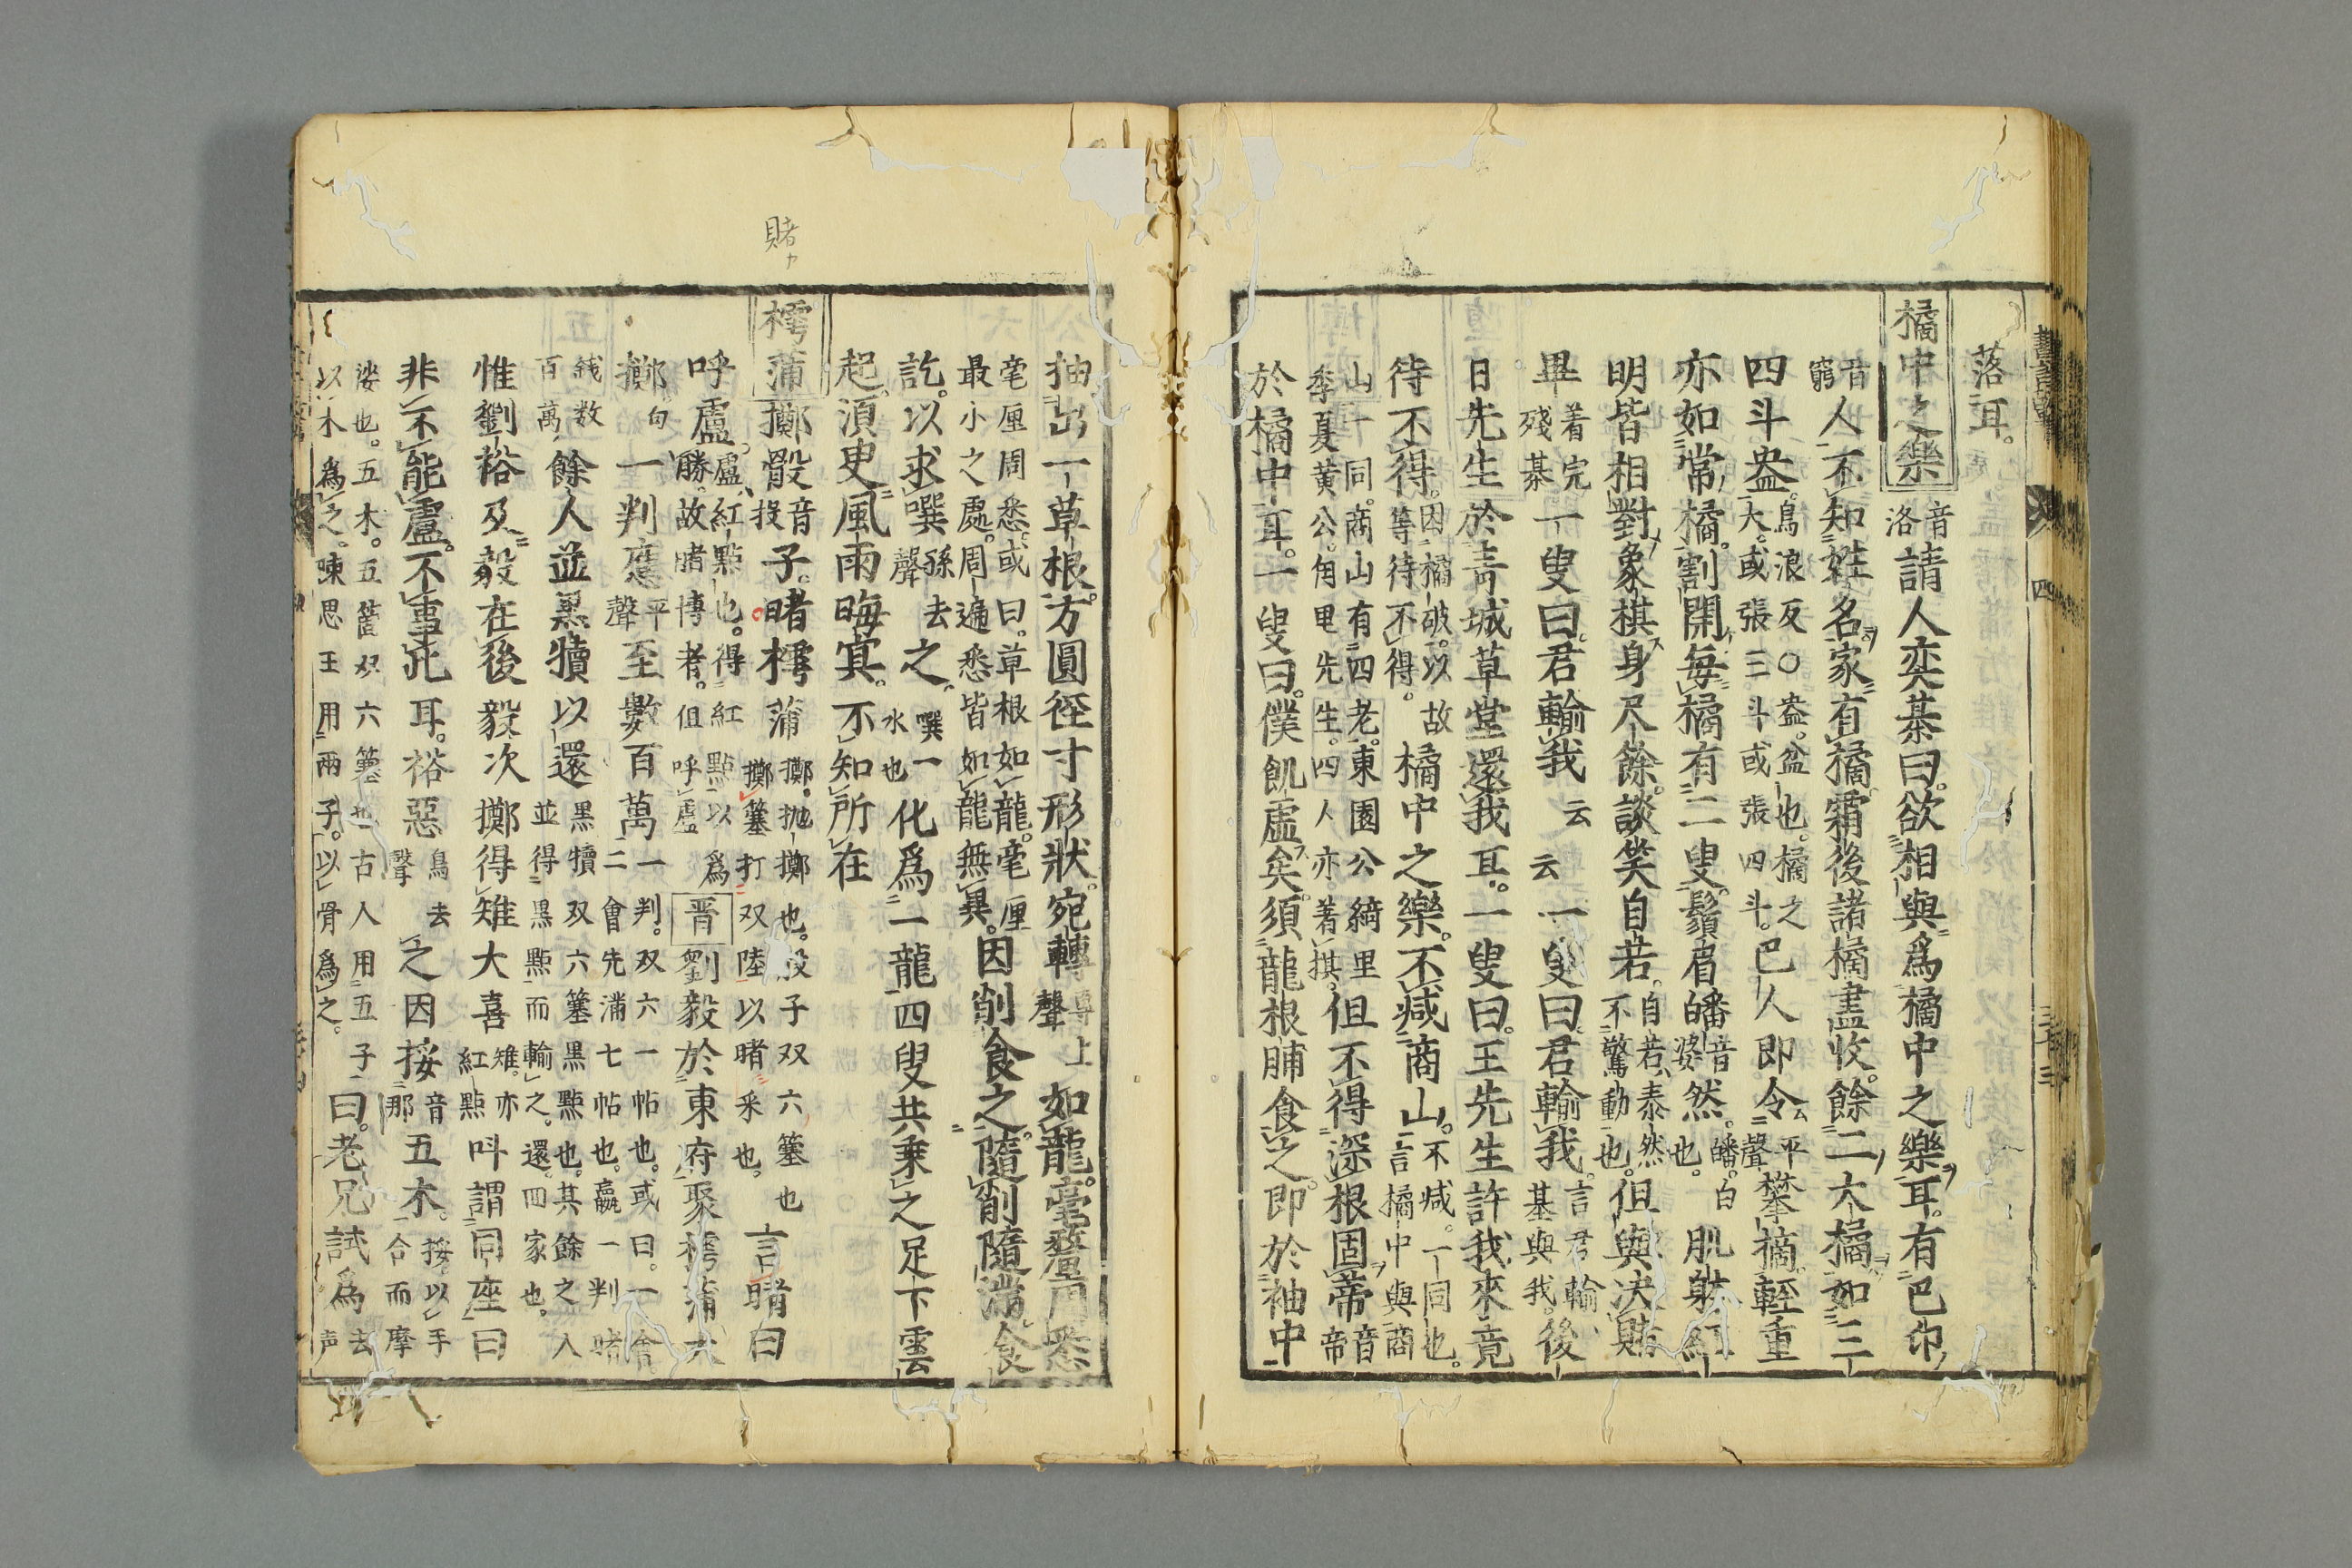 落耳。
橘中之樂 音洛 請人奕棊曰。欲相與爲橘中之樂耳。有巴卭
音窮 人不知姓名家有橘霜後諸橘盡收。餘二大橘如三
四斗盎。烏浪反〇盎。盆也。橘之大。或張三斗或張四斗。 巴人即令 平聲 攀摘。輕重
亦如常橘。割開。每橘有二叟鬚眉皤 音婆 然。皤。白也。 肌躰紅
明皆相對象棋身尺餘。談笑自若。自若、泰然不驚動也。 但與決賭
畢 着完殘棊 一叟曰。君輸我 云云 一叟曰。君輸我。言君輸基與我。 後
日先生於青城草堂還我耳。一叟曰。王先生許我來竟
待不得。因橘破。以故等待不得。 橘中之樂。不減商山。不減。一同也。言橘中與商
山一同。商山有四老。東園公綺里季夏黄公。甪里先生。四人亦著棋。 但不得深根固蔕 音帝
於橘中耳。一叟曰。僕飢虛矣。須龍根脯食之。即於袖中
抽出一草根。方圓徑寸形狀。宛轉 專上聲 如龍。毫釐周悉
毫厘周悉。或曰。草根如龍。毫厘最小之處。周遍悉皆如龍無異。 因削食之。隨削隨滿。食
訖。以求噀 孫去聲 之。噀一水也 化爲一龍四叟共乗之足下雲
起。須臾風雨晦冥。不知所在
樗蒲 擲骰 音投 子。睹樗蒲 擲。抛擲也。骰子双六簺也擲簺打双陸以睹采也。 言睹曰
呼盧。盧、紅點也。得紅點以爲勝。故睹博者。但呼盧 晋 劉毅於東府聚樗蒲大
擲。句 一判應 平聲 至數百萬 一判。双六一帖也。或曰。一會。二會先滿七帖也。贏一判睹
銭数百萬 餘人並黒犢以還 黒犢双六簺黒點也。其餘之入並得黒點而輸之。還四家也。
惟劉裕及毅在後毅次擲得雉大喜 雉。亦紅點 呌謂同座曰
非不能盧。不事此耳。裕惡 烏去聲 之因挼 音那 五木。挼。以手一合而摩
挲也。五木。五箇双六簺也古人用五子以木爲之。陳思王用兩子。以骨爲之。 曰。老兄試爲 去声
賭カ
四